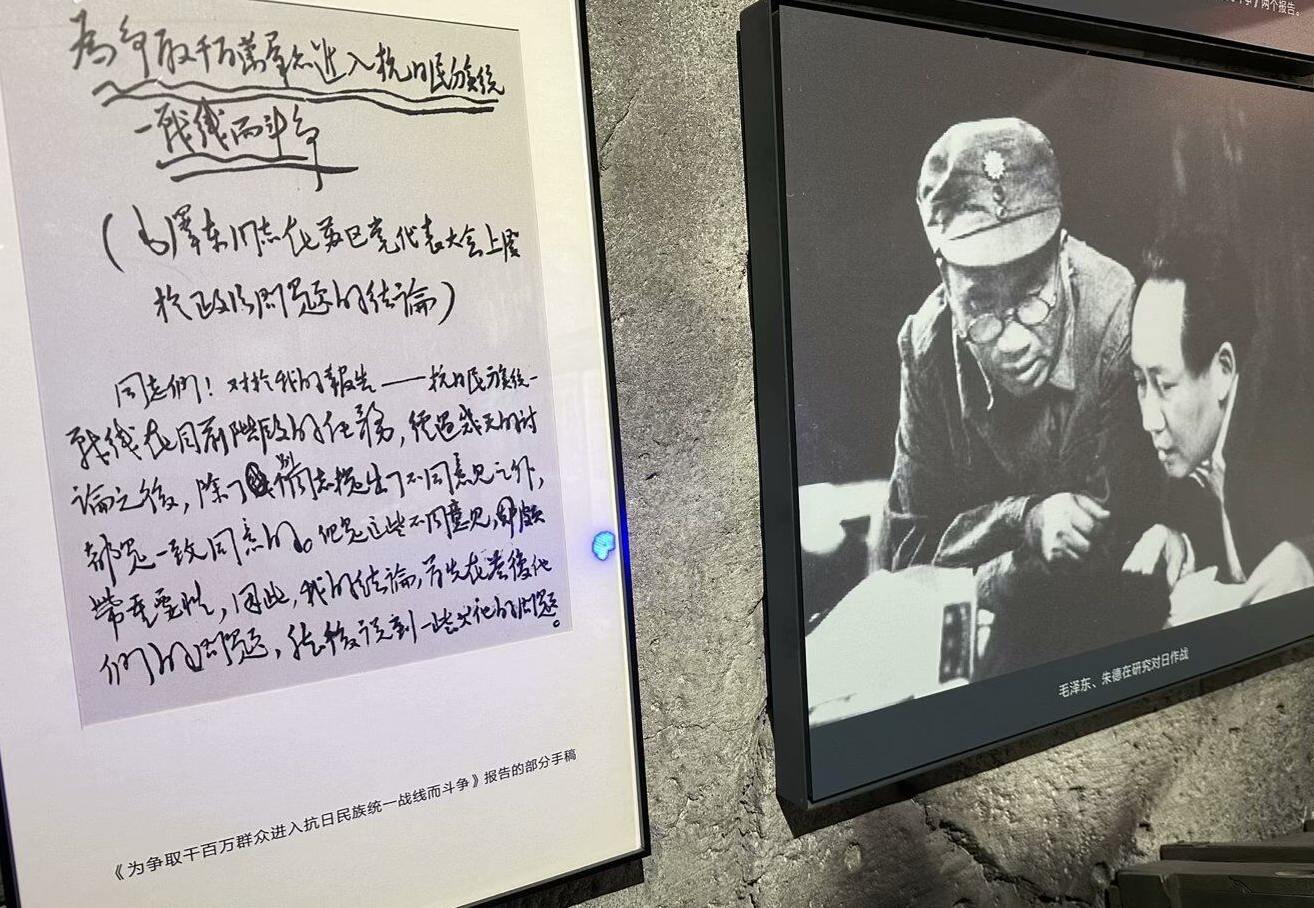 為争取千百萬羣众进入抗日民族统
一战线而斗争
(毛澤东同志在苏区党代表大会上関
扵政治問题的结論)
同志們！对扵我的報告——抗日民族统一
战线在目前階段的任務，经过幾天的讨
論之後，除了 别同志提出了不同意见之外，
都是一致同意的。但是这些不同意见，却
带重要性，因此，我的结論，首先在答復他
們的問题，然後说到一些其他的問题。
《为争取千百万群众进入抗日民族统一战线而斗争》报告的部分手稿
两个报告。
毛泽东、朱德在研究对日作战